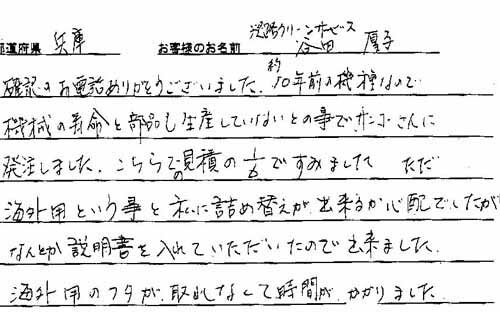 都道府県 兵庫 お客様のお名前 淡路クリーンサービス 谷田 厚子
確認のお電話ありがとうございました。約10年前の機種なので
機械の寿命と部品も生産していないとの事でオンコーさんに
発注しました。こちらでの見積の1/6ですみました ただ
海外用という事と私に詰め替えが出来るか心配でしたが
なんとか説明書を入れていただいたので出来ました。
海外用のフタが取れなくて時間がかかりました。